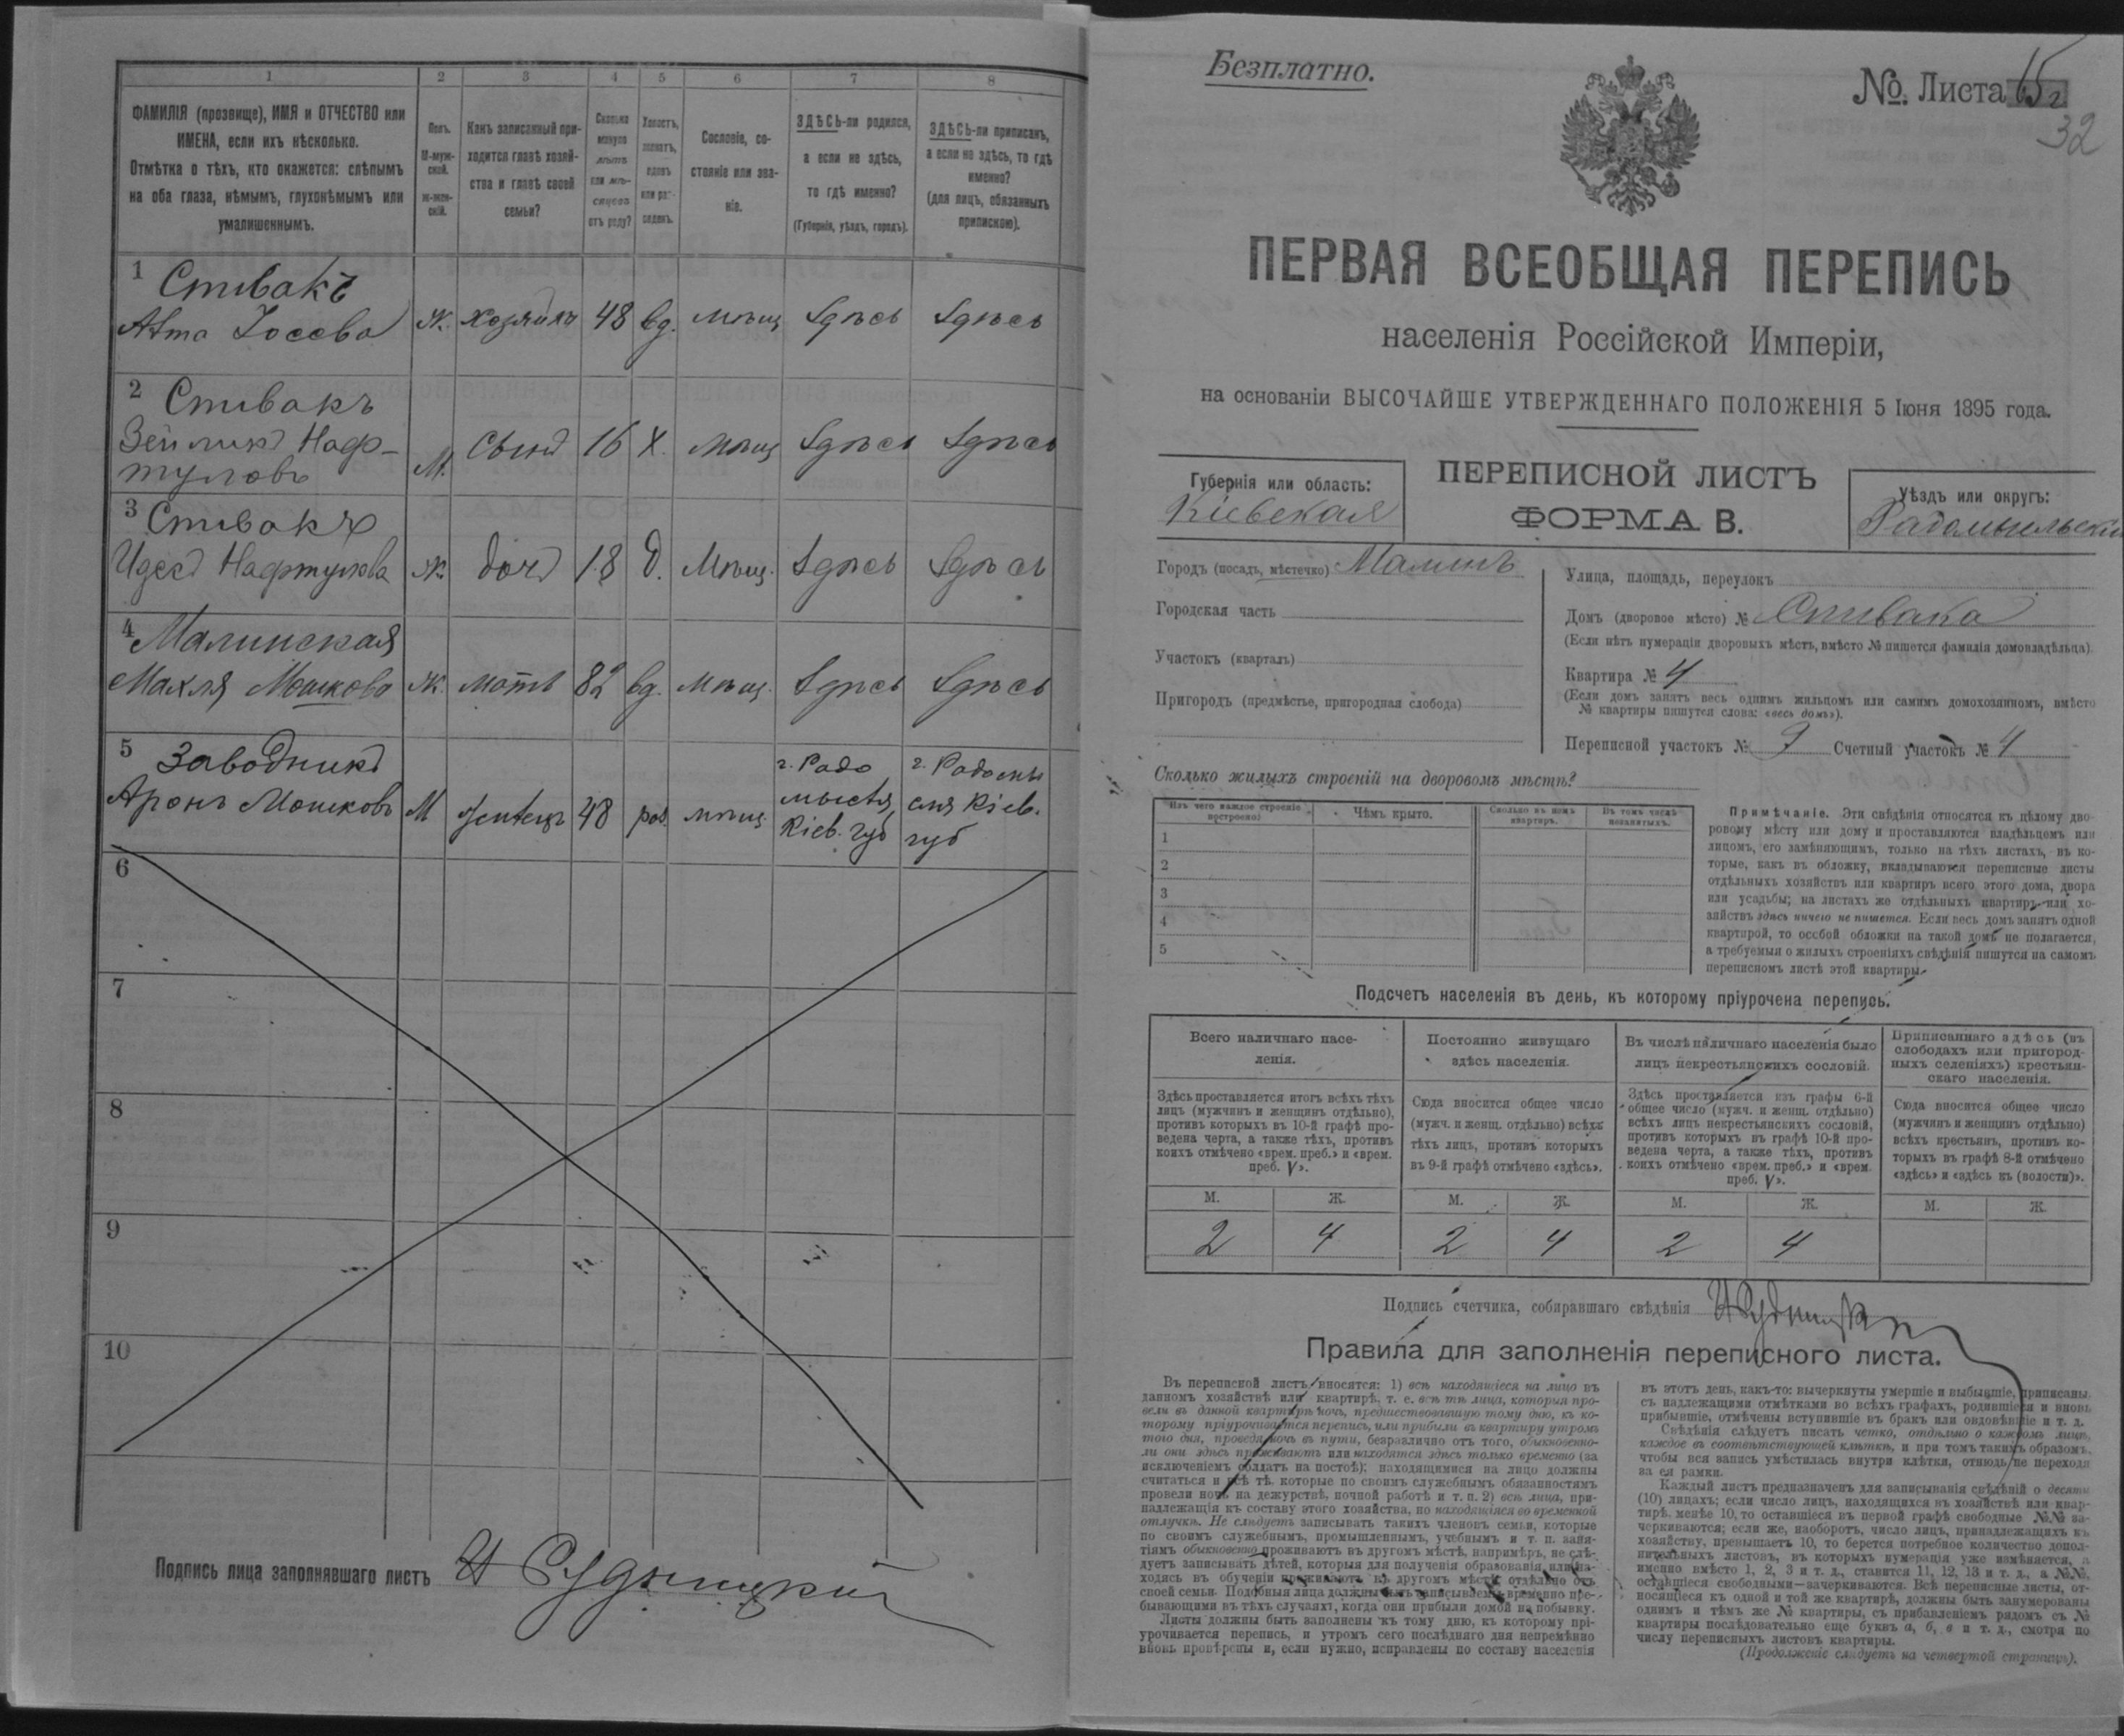 1 2 3 4 5 6 7 8
ФАМИЛІЯ (прозвище), ИМЯ и ОТЧЕСТВО или
ИМЕНА, если ихъ нѣсколько.
Отмѣтка о тѣхъ, кто окажется: слѣпымъ
на оба глаза, нѣмымъ, глухонѣмымъ или
умалишеннымъ.
Полъ.
М-муж-
ской.
Ж-жен-
скій.
Какъ записанный при-
ходится главѣ хозяй-
ства и главѣ своей
семьи?
Сколько
минуло
лѣтъ
или мѣ-
сяцевъ
отъ роду?
Холостъ,
женатъ,
вдовъ
или раз-
веденъ.
Сословіе, со-
стояніе или зва-
ніе.
ЗДѢСЬ-ли родился,
а если не здѣсь,
то гдѣ именно?
(Губернія, уѣздъ, городъ).
ЗДѢСЬ-ли приписанъ,
а если не здѣсь, то гдѣ
именно?
(для лицъ, обязанныхъ
припискою).
1 Спивакъ
Іосева Ж. 48 вд. мѣщ Здѣсь Здѣсь
2 Спивакъ
Зейликъ Наф-
туловъ М. сынъ 16 х. мѣщ Здѣсь Здѣсь
3 Спивакъ
Идесъ Нафтулова Ж. дочь 18 д. мѣщ. Здѣсь Здѣсь
4 Малинская
Махля Мошкова Ж. мать 82 вд. мѣщ. Здѣсь Здѣсь
5 Заводникъ
Аронъ Мошковъ М 48 мѣщ.
г. Радо
мысль
Кіев. губ
г. Радомы
сля Кіев.
губ
6
7
8
9
10
Подпись лица заполнявшаго листъ И Рудницкій
Безплатно.
№. Листа 15
32
ПЕРВАЯ ВСЕОБЩАЯ ПЕРЕПИСЬ
населенія Россійской Имперіи,
на основаніи ВЫСОЧАЙШЕ УТВЕРЖДЕННАГО ПОЛОЖЕНІЯ 5 Іюня 1895 года.
Губернія или область:
Кіевская
ПЕРЕПИСНОЙ ЛИСТЪ
ФОРМА В.
Уѣздъ или округъ:
Радомысльскій
Городъ (посадъ, мѣстечко) Малинъ
Городская часть
Участокъ (кварталъ)
Пригородъ (предмѣстье, пригородная слобода)
Улица, площадь, переулокъ
Домъ (дворовое мѣсто) № Спивака
(Если нѣтъ нумераціи дворовыхъ мѣстъ, вмѣсто № пишется фамилія домовладѣльца)
Квартира № 4
(Если домъ занятъ весь однимъ жильцомъ или самимъ домохозяиномъ, вмѣсто
№ квартиры пишутся слова: «весь домъ»).
Переписной участокъ № 9 Счетный участокъ № 4
Сколько жилыхъ строеній на дворовомъ мѣстѣ?
Изъ чего каждое строеніе
построено?
Чѣмъ крыто.
Сколько въ немъ
квартиръ.
Въ томъ числѣ
незанятыхъ.
1
2
3
4
5
Примѣчаніе. Эти свѣдѣнія относятся къ цѣлому дво-
ровому мѣсту или дому и проставляются владѣльцемъ или
лицомъ, его замѣняющимъ, только на тѣхъ листахъ, въ ко-
торые, какъ въ обложку, вкладываются переписные листы
отдѣльныхъ хозяйствъ или квартиръ всего этого дома, двора
или усадьбы; на листахъ же отдѣльныхъ квартиръ или хо-
зяйствъ здѣсь ничего не пишется. Если весь домъ занятъ одной
квартирой, то особой обложки на такой домъ не полагается,
а требуемыя о жилыхъ строеніяхъ свѣдѣнія пишутся на самомъ
переписномъ листѣ этой квартиры.
Подсчетъ населенія въ день, къ которому пріурочена перепись.
Всего наличнаго насе-
ленія.
Постоянно живущаго
здѣсь населенія.
Въ числѣ наличнаго населенія было
лицъ некрестьянскихъ сословій.
Приписаннаго здѣсь (въ
слободахъ или пригород-
ныхъ селеніяхъ) крестьян-
скаго населенія.
Здѣсь проставляется итогъ всѣхъ тѣхъ
лицъ (мужчинъ и женщинъ отдѣльно),
противъ которыхъ въ 10-й графѣ про-
ведена черта, а также тѣхъ, противъ
коихъ отмѣчено «врем. преб.» и «врем.
преб. V».
Сюда вносится общее число
(мужч. и женщ. отдѣльно) всѣхъ
тѣхъ лицъ, противъ которыхъ
въ 9-й графѣ отмѣчено «здѣсь».
Здѣсь проставляется изъ графы 6-й
общее число (мужч. и женщ. отдѣльно)
всѣхъ лицъ некрестьянскихъ сословій,
противъ которыхъ въ графѣ 10-й про-
ведена черта, а также тѣхъ, противъ
коихъ отмѣчено «врем. преб.» и «врем.
преб. V».
Сюда вносится общее число
(мужчинъ и женщинъ отдѣльно)
всѣхъ крестьянъ, противъ ко-
торыхъ въ графѣ 8-й отмѣчено
«здѣсь» и «здѣсь къ (волости)».
М. Ж. М. Ж. М. Ж. М. Ж.
2 4 2 4 2 4
Подпись счетчика, собиравшаго свѣдѣнія И Рудницкій
Правила для заполненія переписного листа.
Въ переписной листъ вносятся: 1) всѣ находящіеся на лицо въ
данномъ хозяйствѣ или квартирѣ, т. е. всѣ тѣ лица, которыя про-
вели въ данной квартирѣ ночь, предшествовавшую тому дню, къ ко-
торому пріурочивается перепись, или прибыли въ квартиру утромъ
того дня, проведя ночь въ пути, безразлично отъ того, обыкновенно-
ли они здѣсь проживаютъ или находятся здѣсь только временно (за
исключеніемъ солдатъ на постоѣ); находящимися на лицо должны
считаться и всѣ тѣ, которые по своимъ служебнымъ обязанностямъ
провели ночь на дежурствѣ, ночной работѣ и т. п. 2) всѣ лица, при-
надлежащія къ составу этого хозяйства, но находящіяся во временной
отлучкѣ. Не слѣдуетъ записывать такихъ членовъ семьи, которые
по своимъ служебнымъ, промышленнымъ, учебнымъ и т. п. заня-
тіямъ обыкновенно проживаютъ въ другомъ мѣстѣ, напримѣръ, не слѣ-
дуетъ записывать дѣтей, которыя для полученія образованія, или на-
ходясь въ обученіи проживаютъ въ другомъ мѣстѣ отдѣльно отъ
своей семьи. Подобныя лица должны быть записываемы временно пре-
бывающими въ тѣхъ случаяхъ, когда они прибыли домой на побывку.
Листы должны быть заполнены къ тому дню, къ которому прі-
урочивается перепись, и утромъ сего послѣдняго дня непремѣнно
вновь провѣрены и, если нужно, исправлены по составу населенія
въ этотъ день, какъ-то: вычеркнуты умершіе и выбывшіе, приписаны
съ надлежащими отмѣтками во всѣхъ графахъ, родившіеся и вновь
прибывшіе, отмѣчены вступившіе въ бракъ или овдовѣвшіе и т. д.
Свѣдѣнія слѣдуетъ писать четко, отдѣльно о каждомъ лицѣ,
каждое въ соотвѣтствующей клѣткѣ, и при томъ такимъ образомъ,
чтобы вся запись умѣстилась внутри клѣтки, отнюдь не переходя
за ея рамки.
Каждый листъ предназначенъ для записыванія свѣдѣній о десяти
(10) лицахъ; если число лицъ, находящихся въ хозяйствѣ или квар-
тирѣ, менѣе 10, то оставшіеся въ первой графѣ свободные №№ за-
черкиваются; если же, наоборотъ, число лицъ, принадлежащихъ къ
хозяйству, превышаетъ 10, то берется потребное количество допол-
нительныхъ листовъ, въ которыхъ нумерація уже измѣняется, а
именно вмѣсто 1, 2, 3 и т. д., ставится 11, 12, 13 и т. д., а №№,
оставшіеся свободными—зачеркиваются. Всѣ переписные листы, от-
носящіеся къ одной и той же квартирѣ, должны быть занумерованы
однимъ и тѣмъ же № квартиры, съ прибавленіемъ рядомъ съ №
квартиры послѣдовательно еще буквъ а, б, в и т. д., смотря по
числу переписныхъ листовъ квартиры.
(Продолженіе слѣдуетъ на четвертой страницѣ).